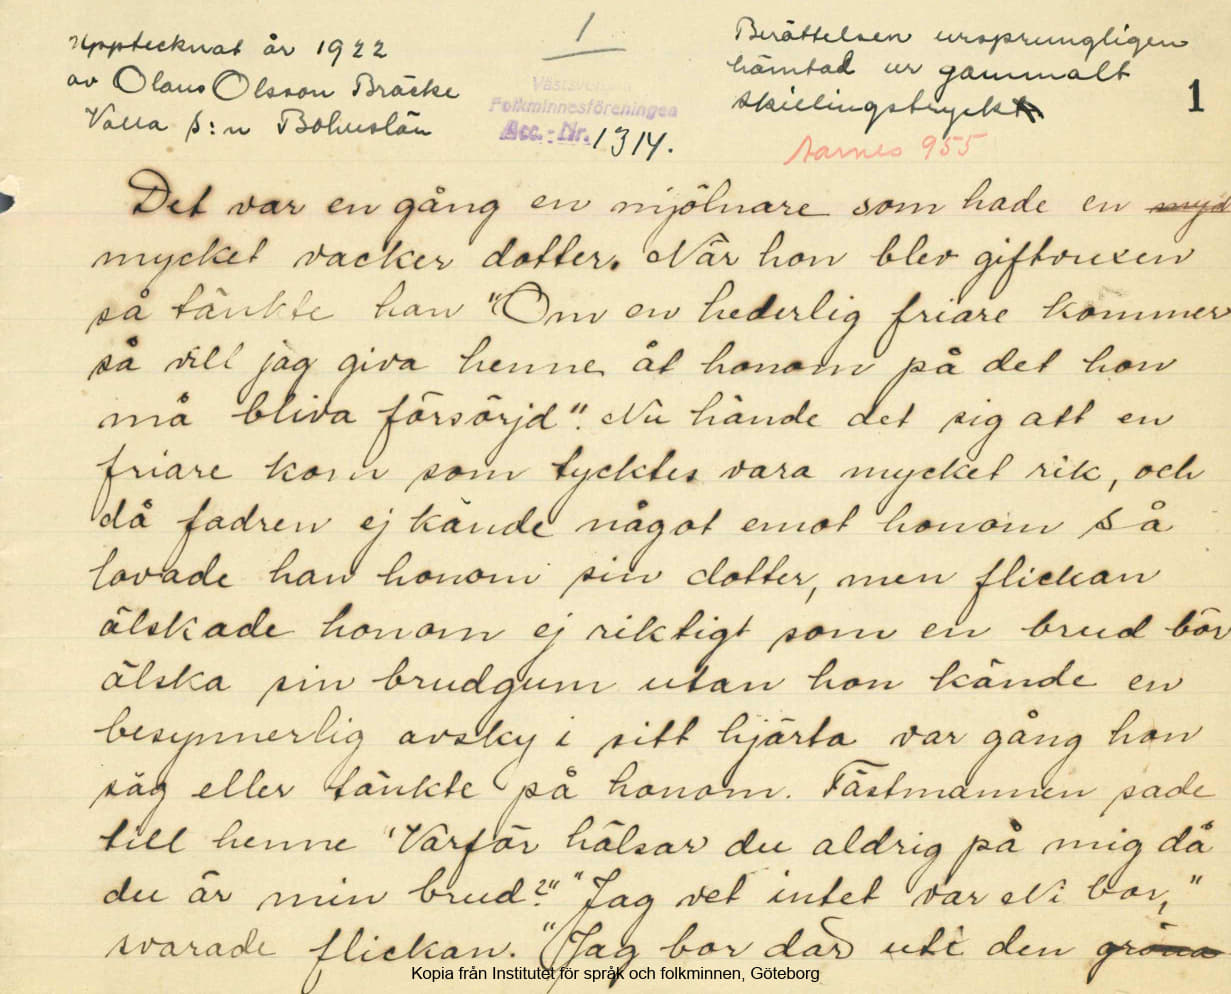 1
Upptecknat år 1922
av Olaus Olsson Bräcke
Valla s:n Bohuslän
Västsvenska
Folkminnesföreningen
Acc.-Nr. 1314.
Berättelsen ursprungligen
hämtad ur gammalt
skillingstryck
1
Aarnes 955
Det var en gång en mjölnare som hade en myd
mycket vacker dotter. När hon blev giftvuxen
så tänkte han "Om en hederlig friare kommer
så vill jag giva henne åt honom på det hon
må bliva försörjd". Nu hände det sig att en
friare kom som tycktes vara mycket rik, och
då fadren ej kände något emot honom så
lovade han honom sin dotter, men flickan
älskade honom ej riktigt som en brud bör
älska sin brudgum utan hon kände en
besynnerlig avsky i sitt hjärta var gång hon
såg eller tänkte på honom. Fästmannen sade
till henne "Varför hälsar du aldrig på mig då
du är min brud?" "Jag vet intet var Ni bor,"
svarade flickan. "Jag bor där uti den gröna
Kopia från Institutet för språk och folkminnen, Göteborg